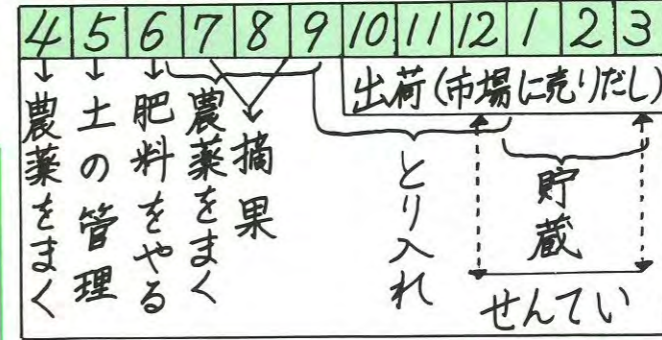 4 5 6 7 8 9 10 11 12 1 2 3
農薬をまく
土の管理
肥料をやる
農薬をまく
摘果
出荷(市場に売りだし)
とり入れ
貯蔵
せんてい